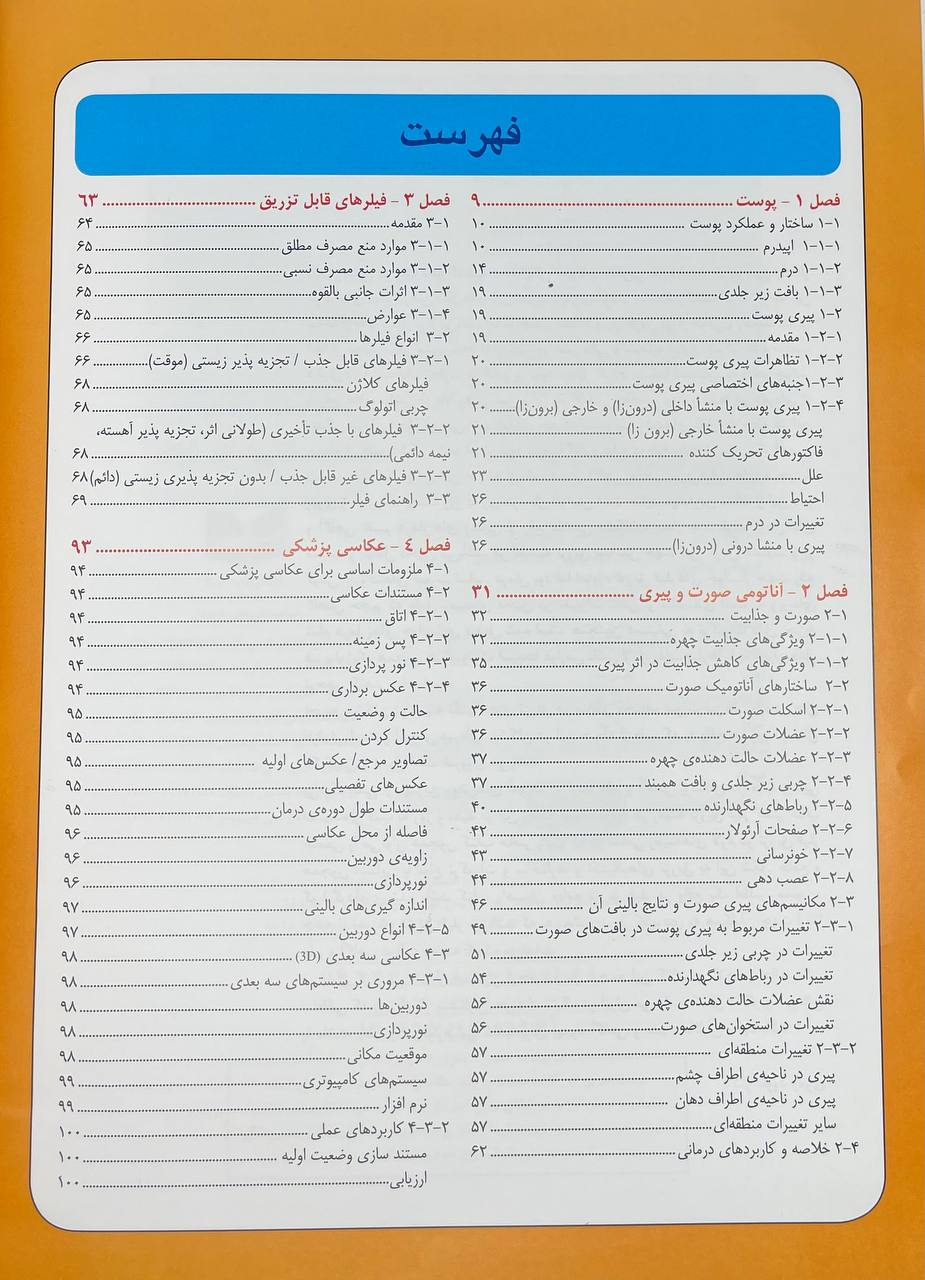 فهرست
فصل ۱ - پوست ........ ۹
۱-۱ ساختار و عملکرد پوست ........ ۱۰
۱-۱-۱ اپیدرم ........ ۱۰
۱-۱-۲ درم ........ ۱۴
۱-۱-۳ بافت زیر جلدی ........ ۱۹
۱-۲ پیری پوست ........ ۱۹
۱-۲-۱ مقدمه ........ ۱۹
۱-۲-۲ تظاهرات پیری پوست ........ ۲۰
۱-۲-۳جنبه‌های اختصاصی پیری پوست ........ ۲۰
۱-۲-۴ پیری پوست با منشأ داخلی (درون‌زا) و خارجی (برون‌زا) ........ ۲۰
پیری پوست با منشأ خارجی (برون زا) ........ ۲۱
فاکتورهای تحریک کننده ........ ۲۱
علل ........ ۲۳
احتیاط ........ ۲۶
تغییرات در درم ........ ۲۶
پیری با منشا درونی (درون‌زا) ........ ۲۶
فصل ۲ - آناتومی صورت و پیری ........ ۳۱
۲-۱ صورت و جذابیت ........ ۳۲
۲-۱-۱ ویژگی‌های جذابیت چهره ........ ۳۲
۲-۱-۲ ویژگی‌های کاهش جذابیت در اثر پیری ........ ۳۵
۲-۲ ساختارهای آناتومیک صورت ........ ۳۶
۲-۲-۱ اسکلت صورت ........ ۳۶
۲-۲-۲ عضلات صورت ........ ۳۶
۲-۲-۳ عضلات حالت دهنده‌ی چهره ........ ۳۷
۲-۲-۴ چربی زیر جلدی و بافت همبند ........ ۳۷
۲-۲-۵ رباط‌های نگهدارنده ........ ۴۰
۲-۲-۶ صفحات آرئولار ........ ۴۲
۲-۲-۷ خونرسانی ........ ۴۳
۲-۲-۸ عصب دهی ........ ۴۴
۲-۳ مکانیسم‌های پیری صورت و نتایج بالینی آن ........ ۴۶
۲-۳-۱ تغییرات مربوط به پیری پوست در بافت‌های صورت ........ ۴۹
تغییرات در چربی زیر جلدی ........ ۵۱
تغییرات در رباط‌های نگهدارنده ........ ۵۴
نقش عضلات حالت دهنده‌ی چهره ........ ۵۶
تغییرات در استخوان‌های صورت ........ ۵۶
۲-۳-۲ تغییرات منطقه‌ای ........ ۵۷
پیری در ناحیه‌ی اطراف چشم ........ ۵۷
پیری در ناحیه‌ی اطراف دهان ........ ۵۷
سایر تغییرات منطقه‌ای ........ ۵۷
۲-۴ خلاصه و کاربردهای درمانی ........ ۶۲
فصل ۳ - فیلرهای قابل تزریق ........ ۶۳
۳-۱ مقدمه ........ ۶۴
۳-۱-۱ موارد منع مصرف مطلق ........ ۶۵
۳-۱-۲ موارد منع مصرف نسبی ........ ۶۵
۳-۱-۳ اثرات جانبی بالقوه ........ ۶۵
۳-۱-۴ عوارض ........ ۶۵
۳-۲ انواع فیلرها ........ ۶۶
۳-۲-۱ فیلرهای قابل جذب / تجزیه پذیر زیستی (موقت) ........ ۶۶
فیلرهای کلاژن ........ ۶۸
چربی اتولوگ ........ ۶۸
۳-۲-۲ فیلرهای با جذب تأخیری (طولانی اثر، تجزیه پذیر آهسته،
نیمه دائمی) ........ ۶۸
۳-۲-۳ فیلرهای غیر قابل جذب / بدون تجزیه پذیری زیستی (دائم) ۶۸
۳-۳ راهنمای فیلر ........ ۶۹
فصل ٤ - عکاسی پزشکی ........ ۹۳
۴-۱ ملزومات اساسی برای عکاسی پزشکی ........ ۹۴
۴-۲ مستندات عکاسی ........ ۹۴
۴-۲-۱ اتاق ........ ۹۴
۴-۲-۲ پس زمینه ........ ۹۴
۴-۲-۳ نور پردازی ........ ۹۴
۴-۲-۴ عکس برداری ........ ۹۴
حالت و وضعیت ........ ۹۵
کنترل کردن ........ ۹۵
تصاویر مرجع/ عکس‌های اولیه ........ ۹۵
عکس‌های تفصیلی ........ ۹۵
مستندات طول دوره‌ی درمان ........ ۹۵
فاصله از محل عکاسی ........ ۹۶
زاویه‌ی دوربین ........ ۹۶
نورپردازی ........ ۹۶
اندازه گیری‌های بالینی ........ ۹۷
۴-۲-۵ انواع دوربین ........ ۹۷
۴-۳ عکاسی سه بعدی (3D) ........ ۹۸
۴-۳-۱ مروری بر سیستم‌های سه بعدی ........ ۹۸
دوربین‌ها ........ ۹۸
نورپردازی ........ ۹۸
موقعیت مکانی ........ ۹۸
سیستم‌های کامپیوتری ........ ۹۹
نرم افزار ........ ۹۹
۴-۳-۲ کاربردهای عملی ........ ۱۰۰
مستند سازی وضعیت اولیه ........ ۱۰۰
ارزیابی ........ ۱۰۰